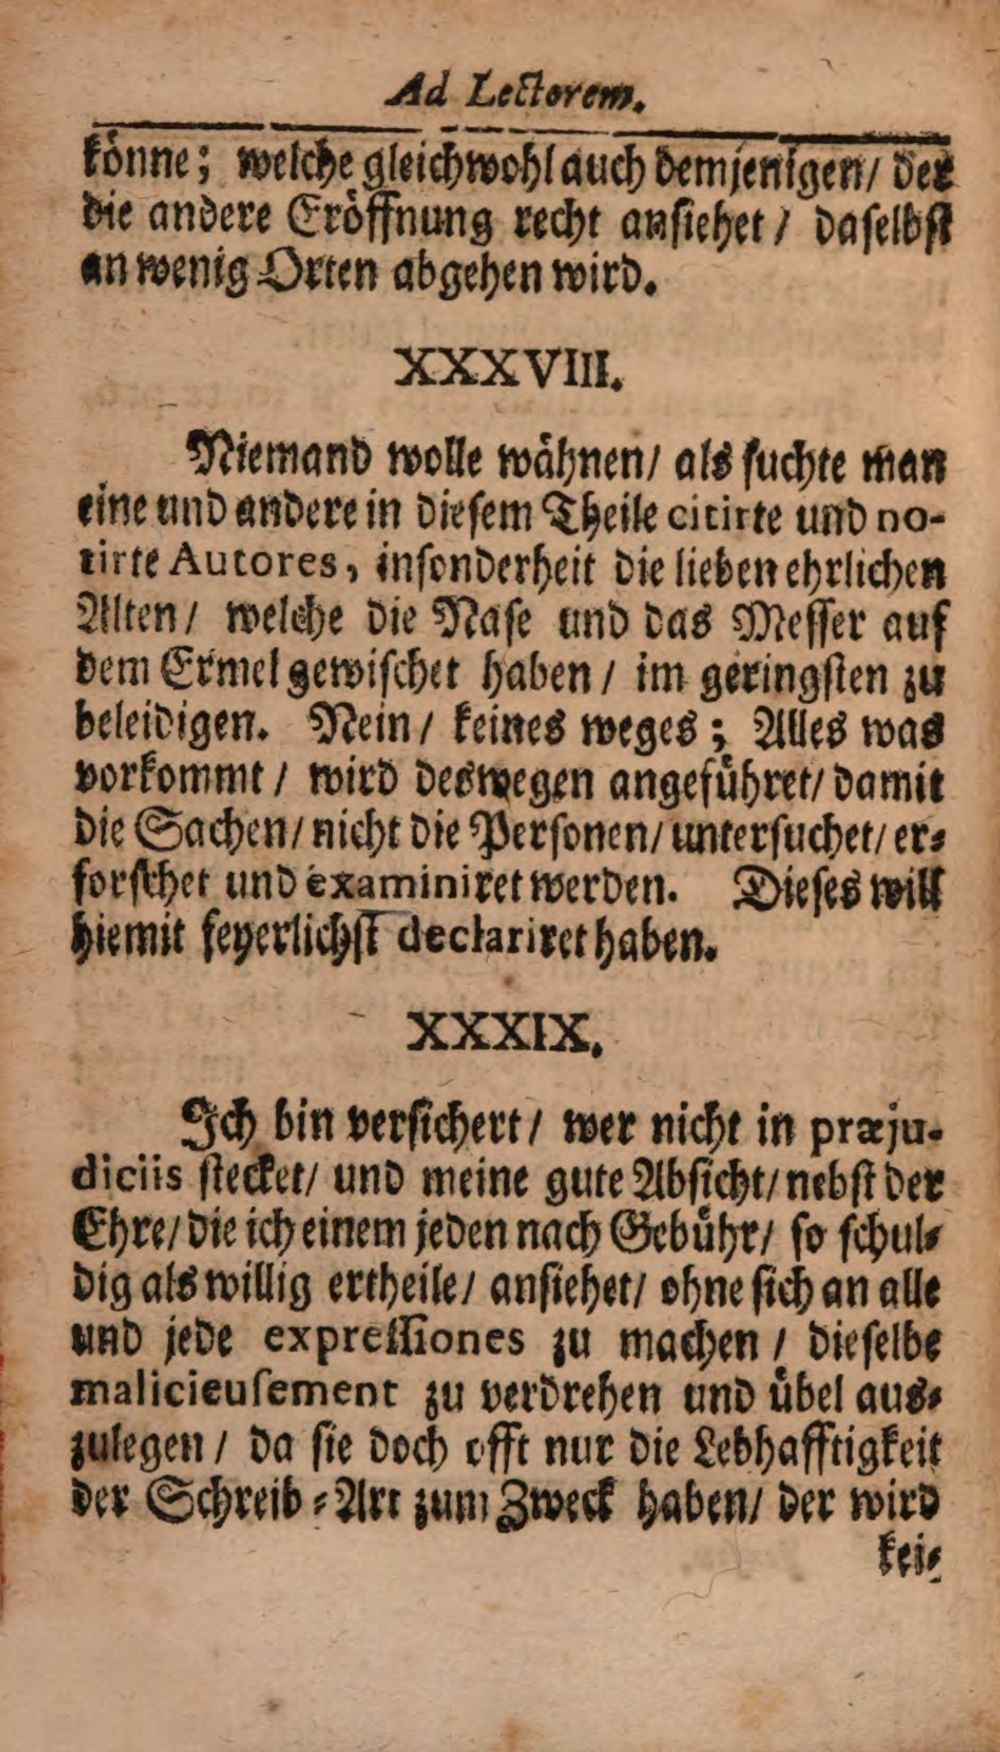 Ad Lectorem.
könne; welche gleichwohl auch demjenigen/ der
die andere Eröffnung recht ansiehet / daselbst
an wenig Orten abgehen wird.
XXXVIII.
Niemand wolle wähnen/ als suchte man
eine und andere in diesem Theile citirte und no-
tirte Autores, insonderheit die lieben ehrlichen
Alten / welche die Nase und das Messer auf
dem Ermel gewischet haben / im geringsten zu
beleidigen. Nein / keines weges ; Alles was
vorkommt / wird deswegen angeführet/ damit
die Sachen/ nicht die Personen/ untersuchet/ er-
forschet und examiniret werden. Dieses will
hiemit feyerlichst declariret haben.
XXXIX.
Ich bin versichert / wer nicht in præju-
diciis stecket/ und meine gute Absicht/ nebst der
Ehre/ die ich einem jeden nach Gebühr/ so schul-
dig als willig ertheile/ ansiehet/ ohne sich an alle
und jede expressiones zu machen / dieselbe
malicieusement zu verdrehen und übel aus-
zulegen / da sie doch offt nur die Lebhafftigkeit
der Schreib-Art zum Zweck haben/ der wird
kei-